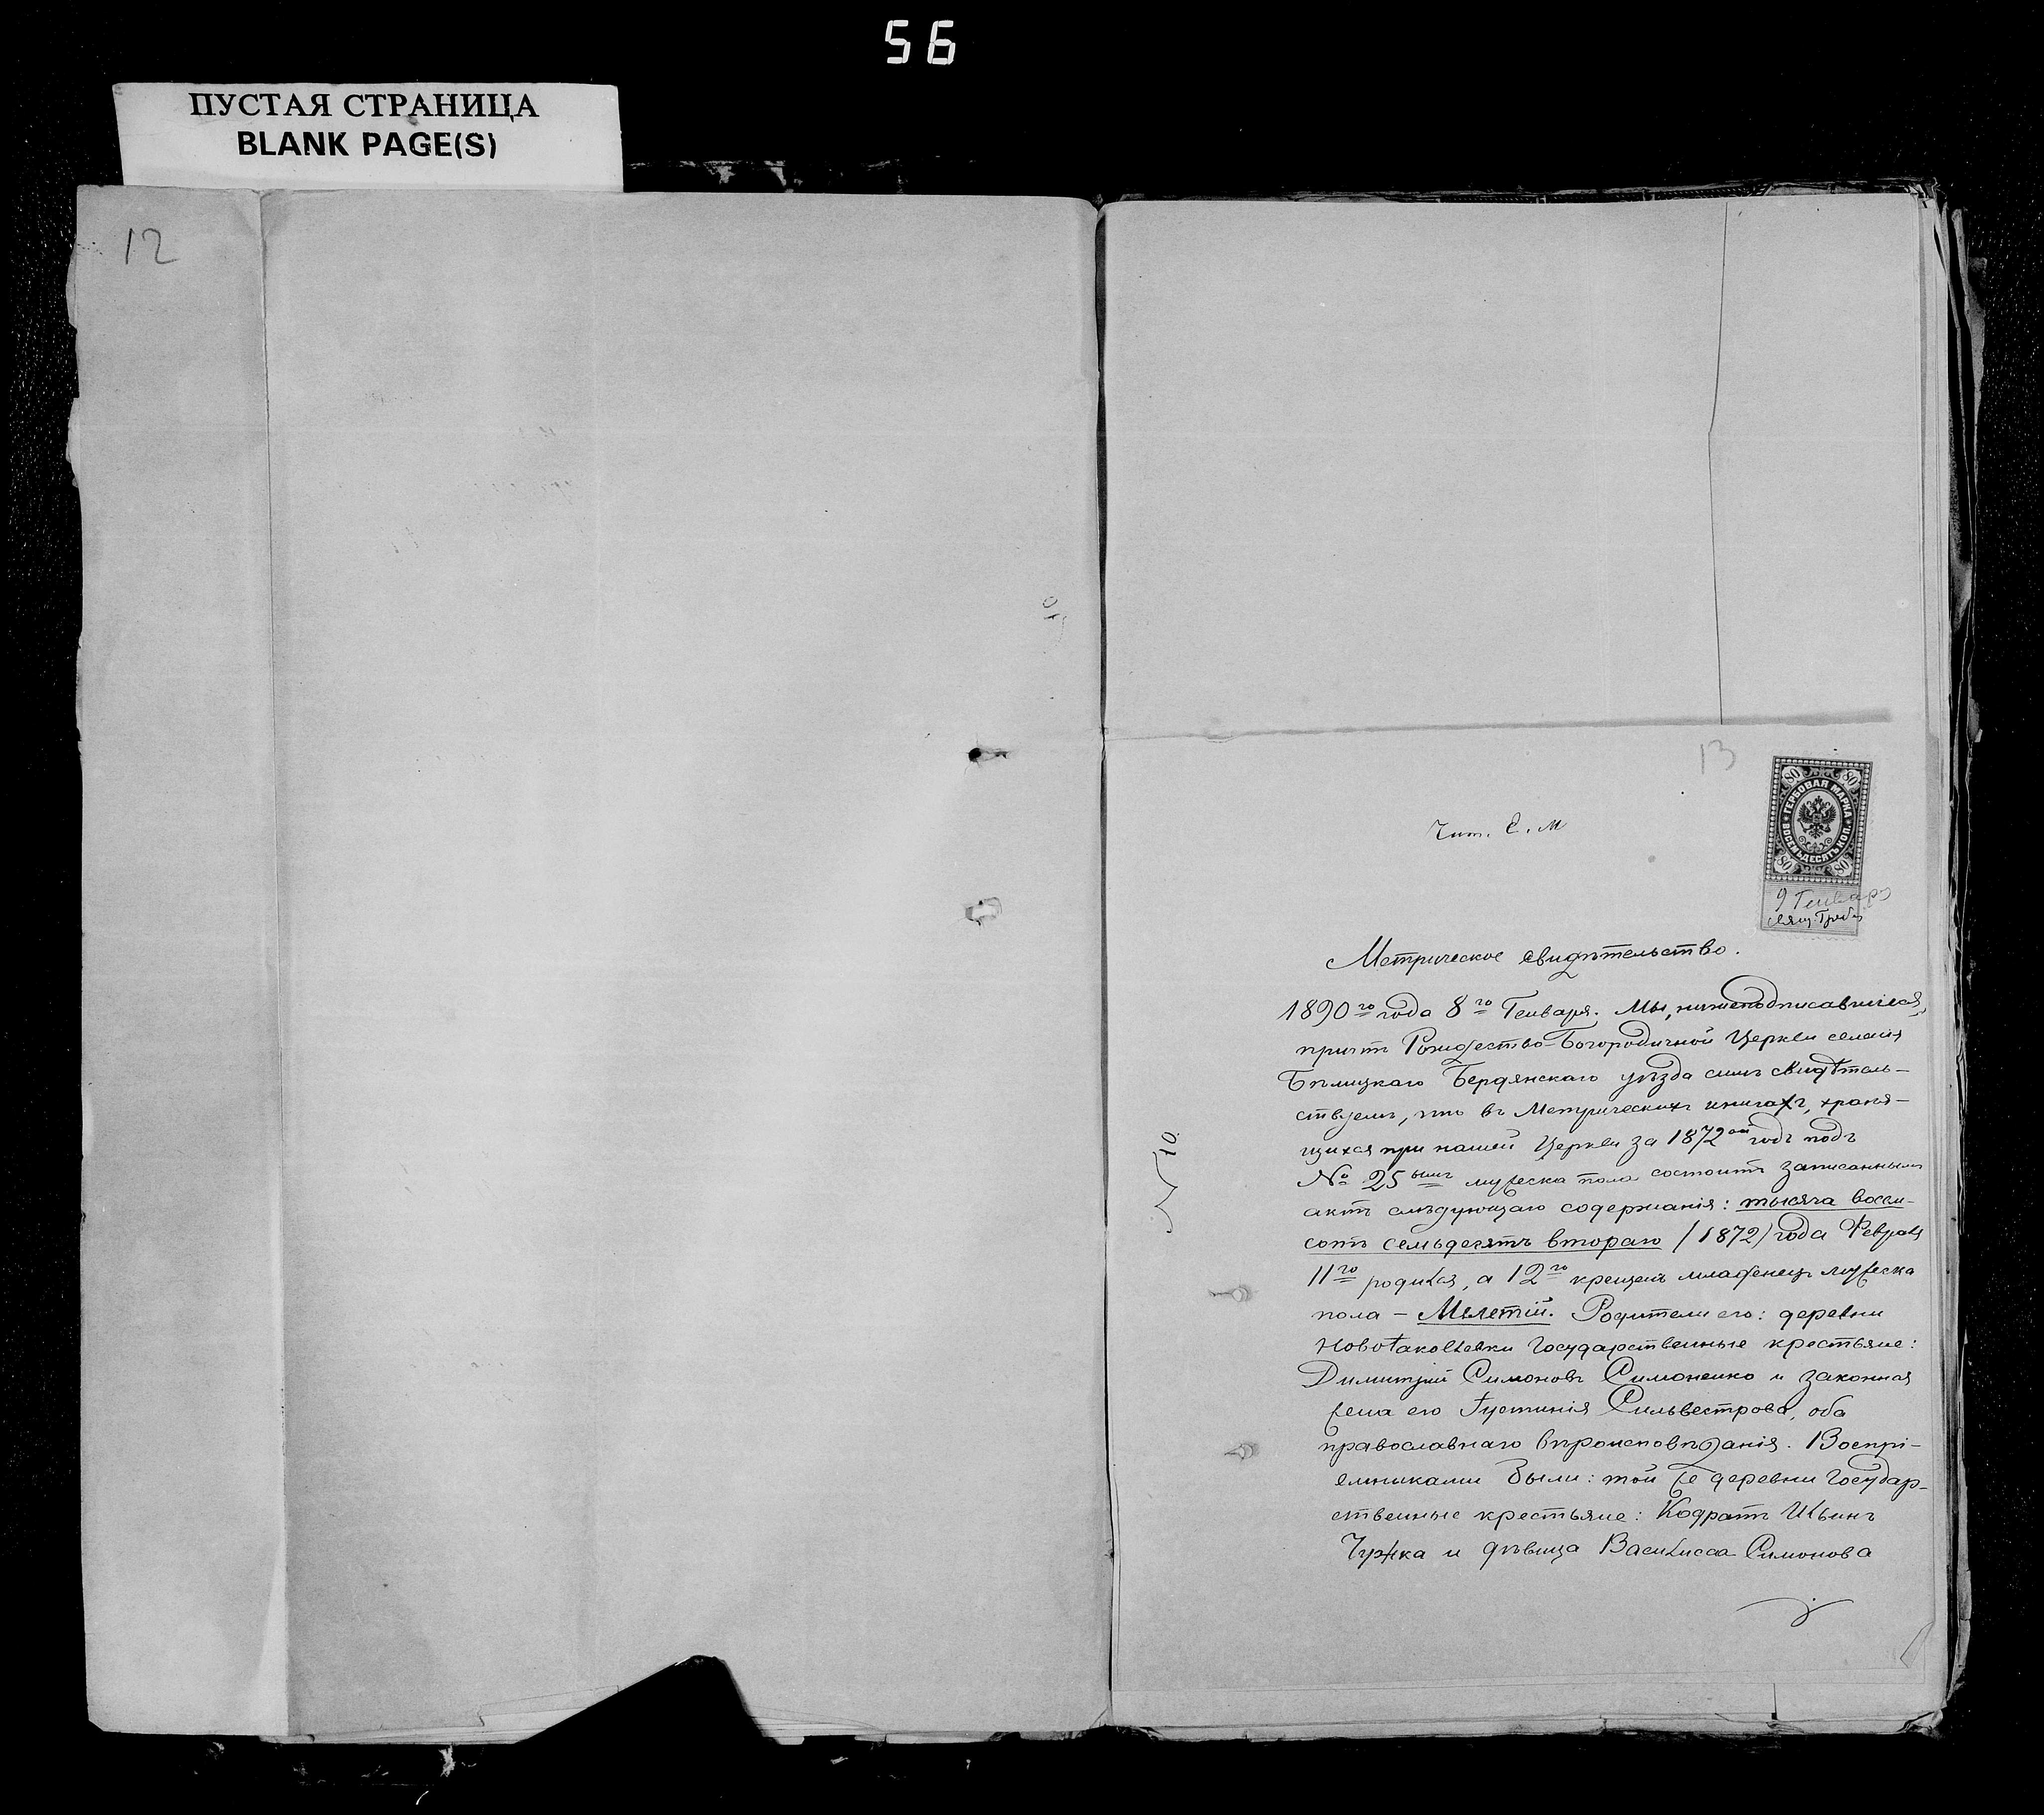 56
ПУСТАЯ СТРАНИЦА
BLANK PAGE(S)
12
13
80 80
ГЕРБОВАЯ МАРКА
ВОСЕМЬДЕСЯТЪ КОП.
80 80
9 Генваря
Чит. С. М
Метрическое свидѣтельство.
1890го года 8го Генваря. Мы, нижеподписавшіеся,
причтъ Рождество-Богородичной Церкви селенія
Бѣлицкаго Бердянскаго уѣзда симъ свидѣтель-
ствуемъ, что въ Метрическихъ книгахъ, храня-
щихся при нашей Церкви за 1872ой годъ подъ
№ 25ымъ мужеска пола состоитъ записаннымъ
актъ слѣдующаго содержанія: тысяча восем-
сотъ семьдесятъ втораго (1872) года Февраля
11го родился, а 12го крещенъ младенецъ мужеска
пола – Мелетій. Родители его: деревни
Новояковлевки Государственные крестьяне:
Димитрій Симоновъ Симоненко и законная
жена его Іустинія Сильвестрова, оба
православнаго вѣроисповѣданія. Воспрі-
емниками были: той же деревни Государ-
ственные крестьяне: Кодратъ Ильинъ
Чужка и дѣвица Василисса Симонова
№ 10.